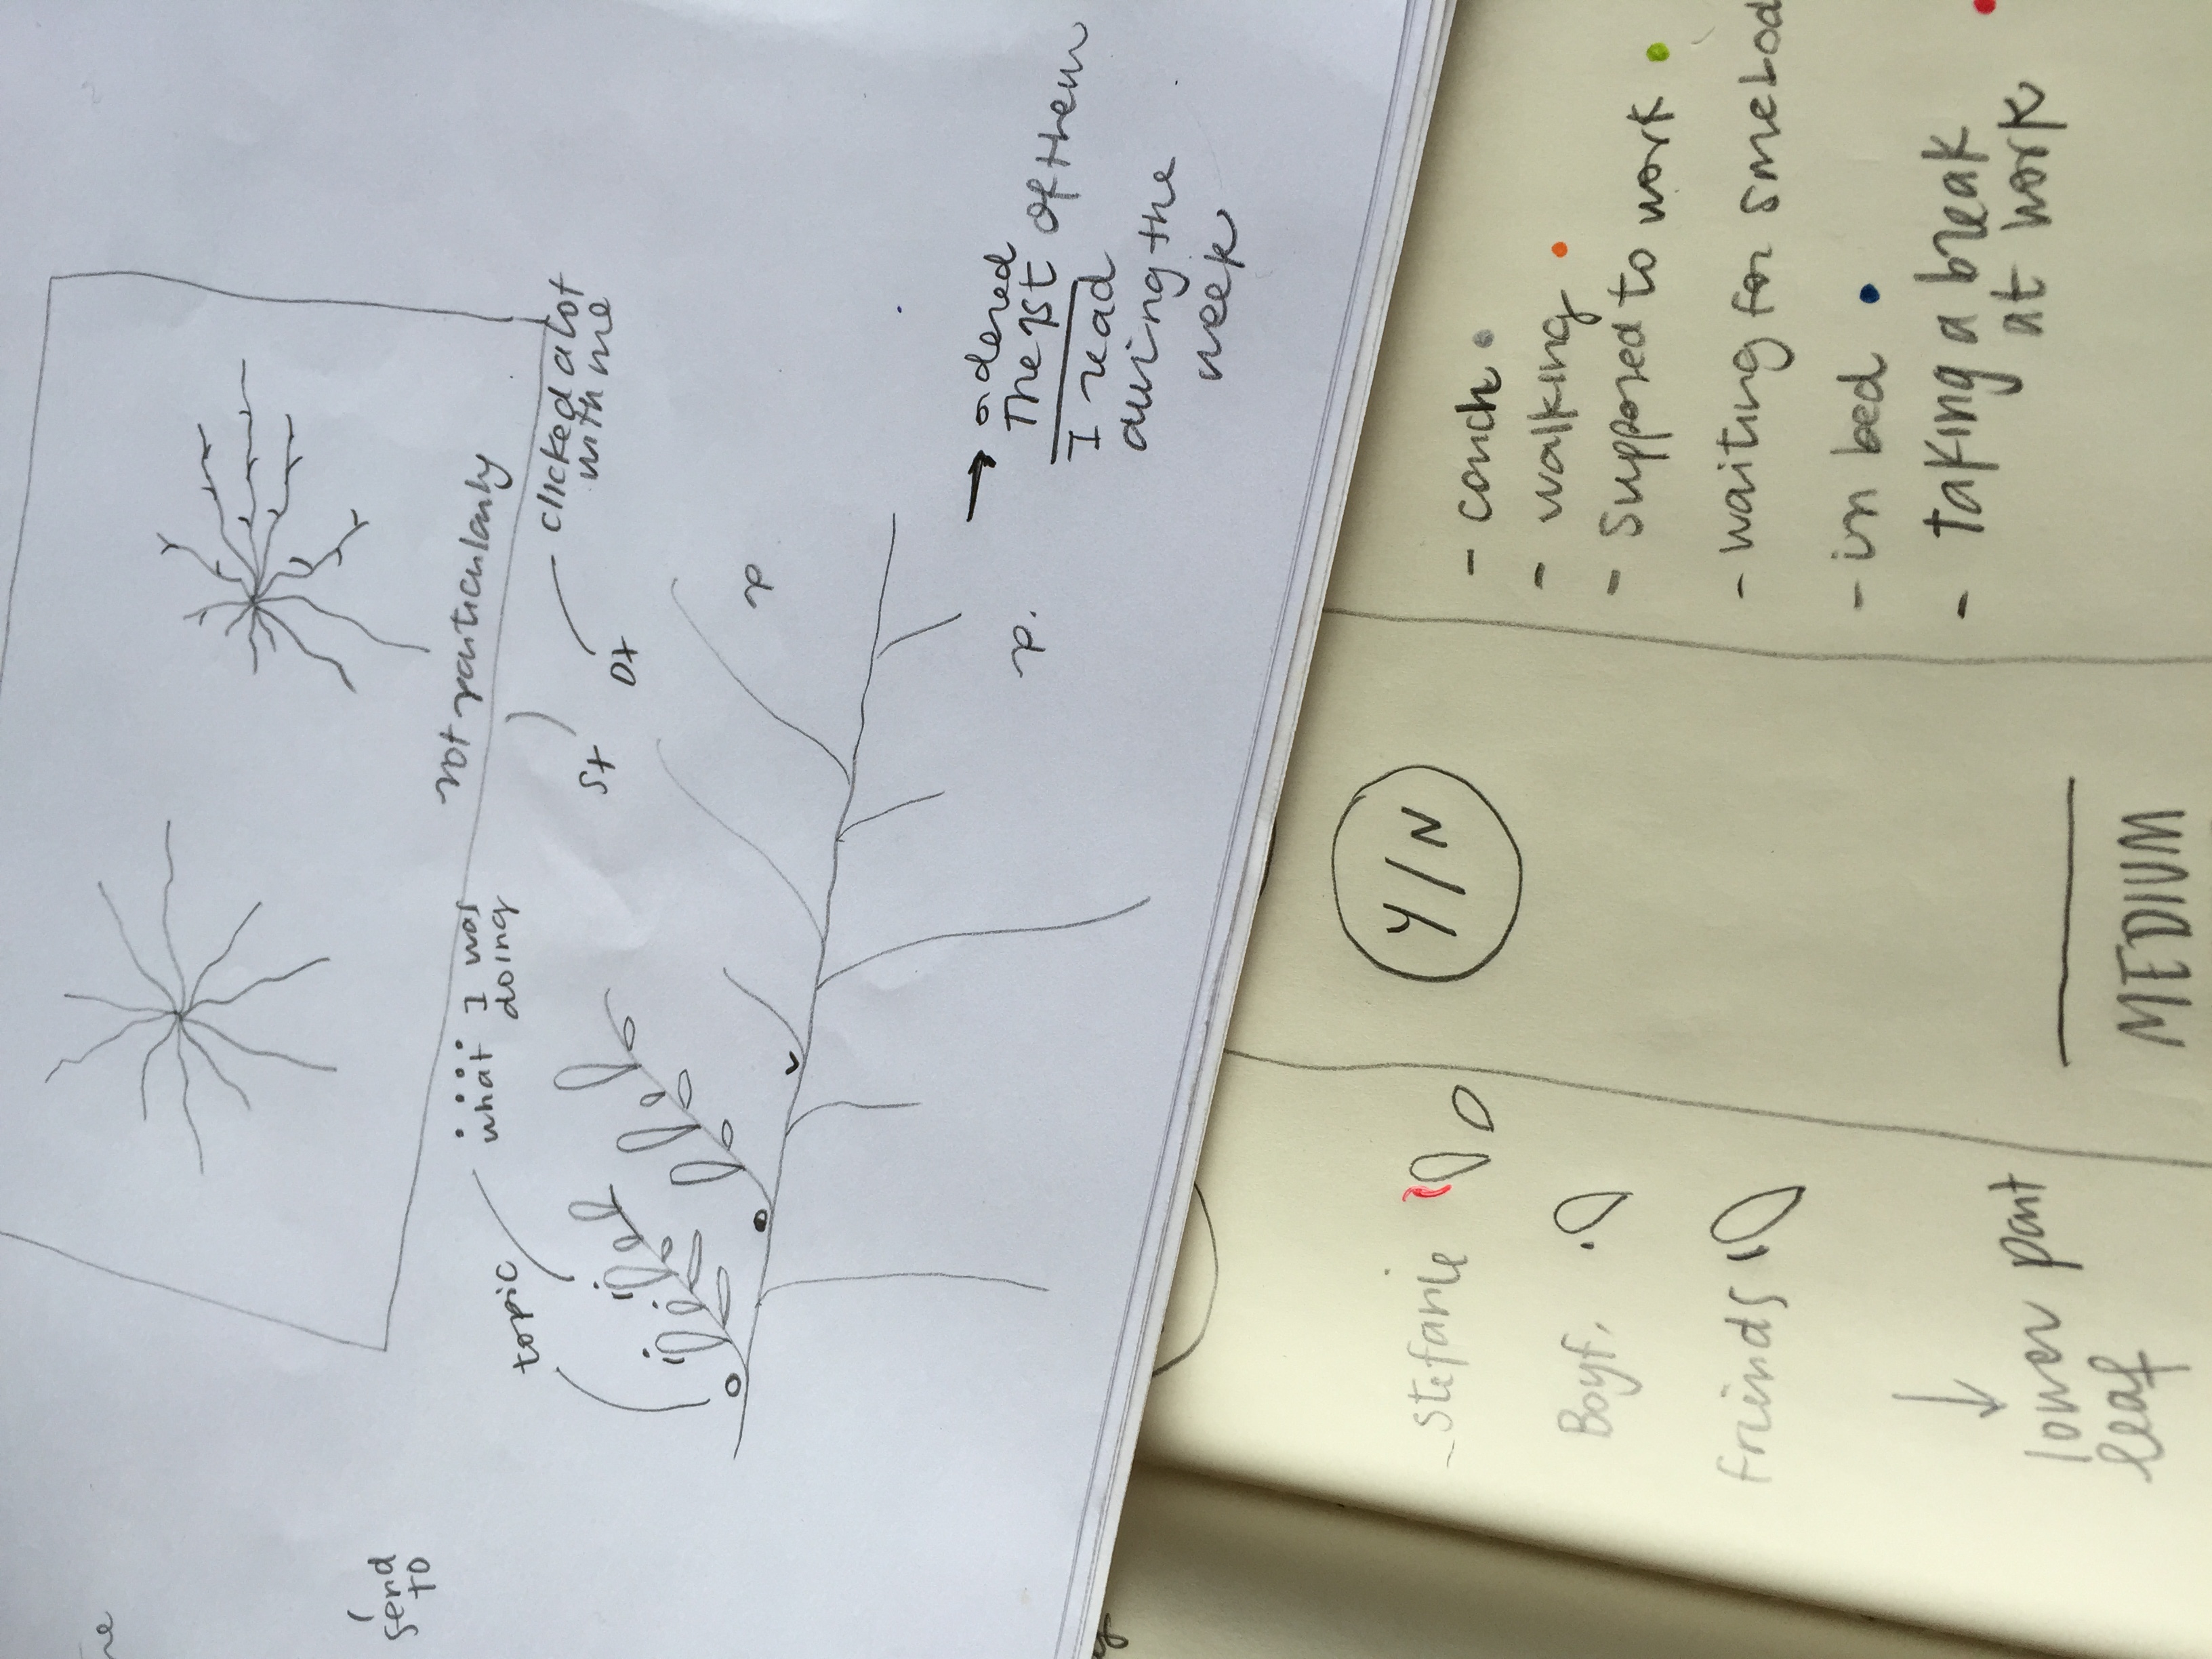 send
to
topic
what I was
doing
not particularly
St
Dt
clicked a lot
with me
p
p.
→ ordered
The 1st of them
I read
during the
week
- Stefanie
Boyf.
friends
↓
lower part
leaf
Y/N
MEDIUM
- couch
- walking
- supposed to work
- waiting for
- in bed
- taking a break
at work